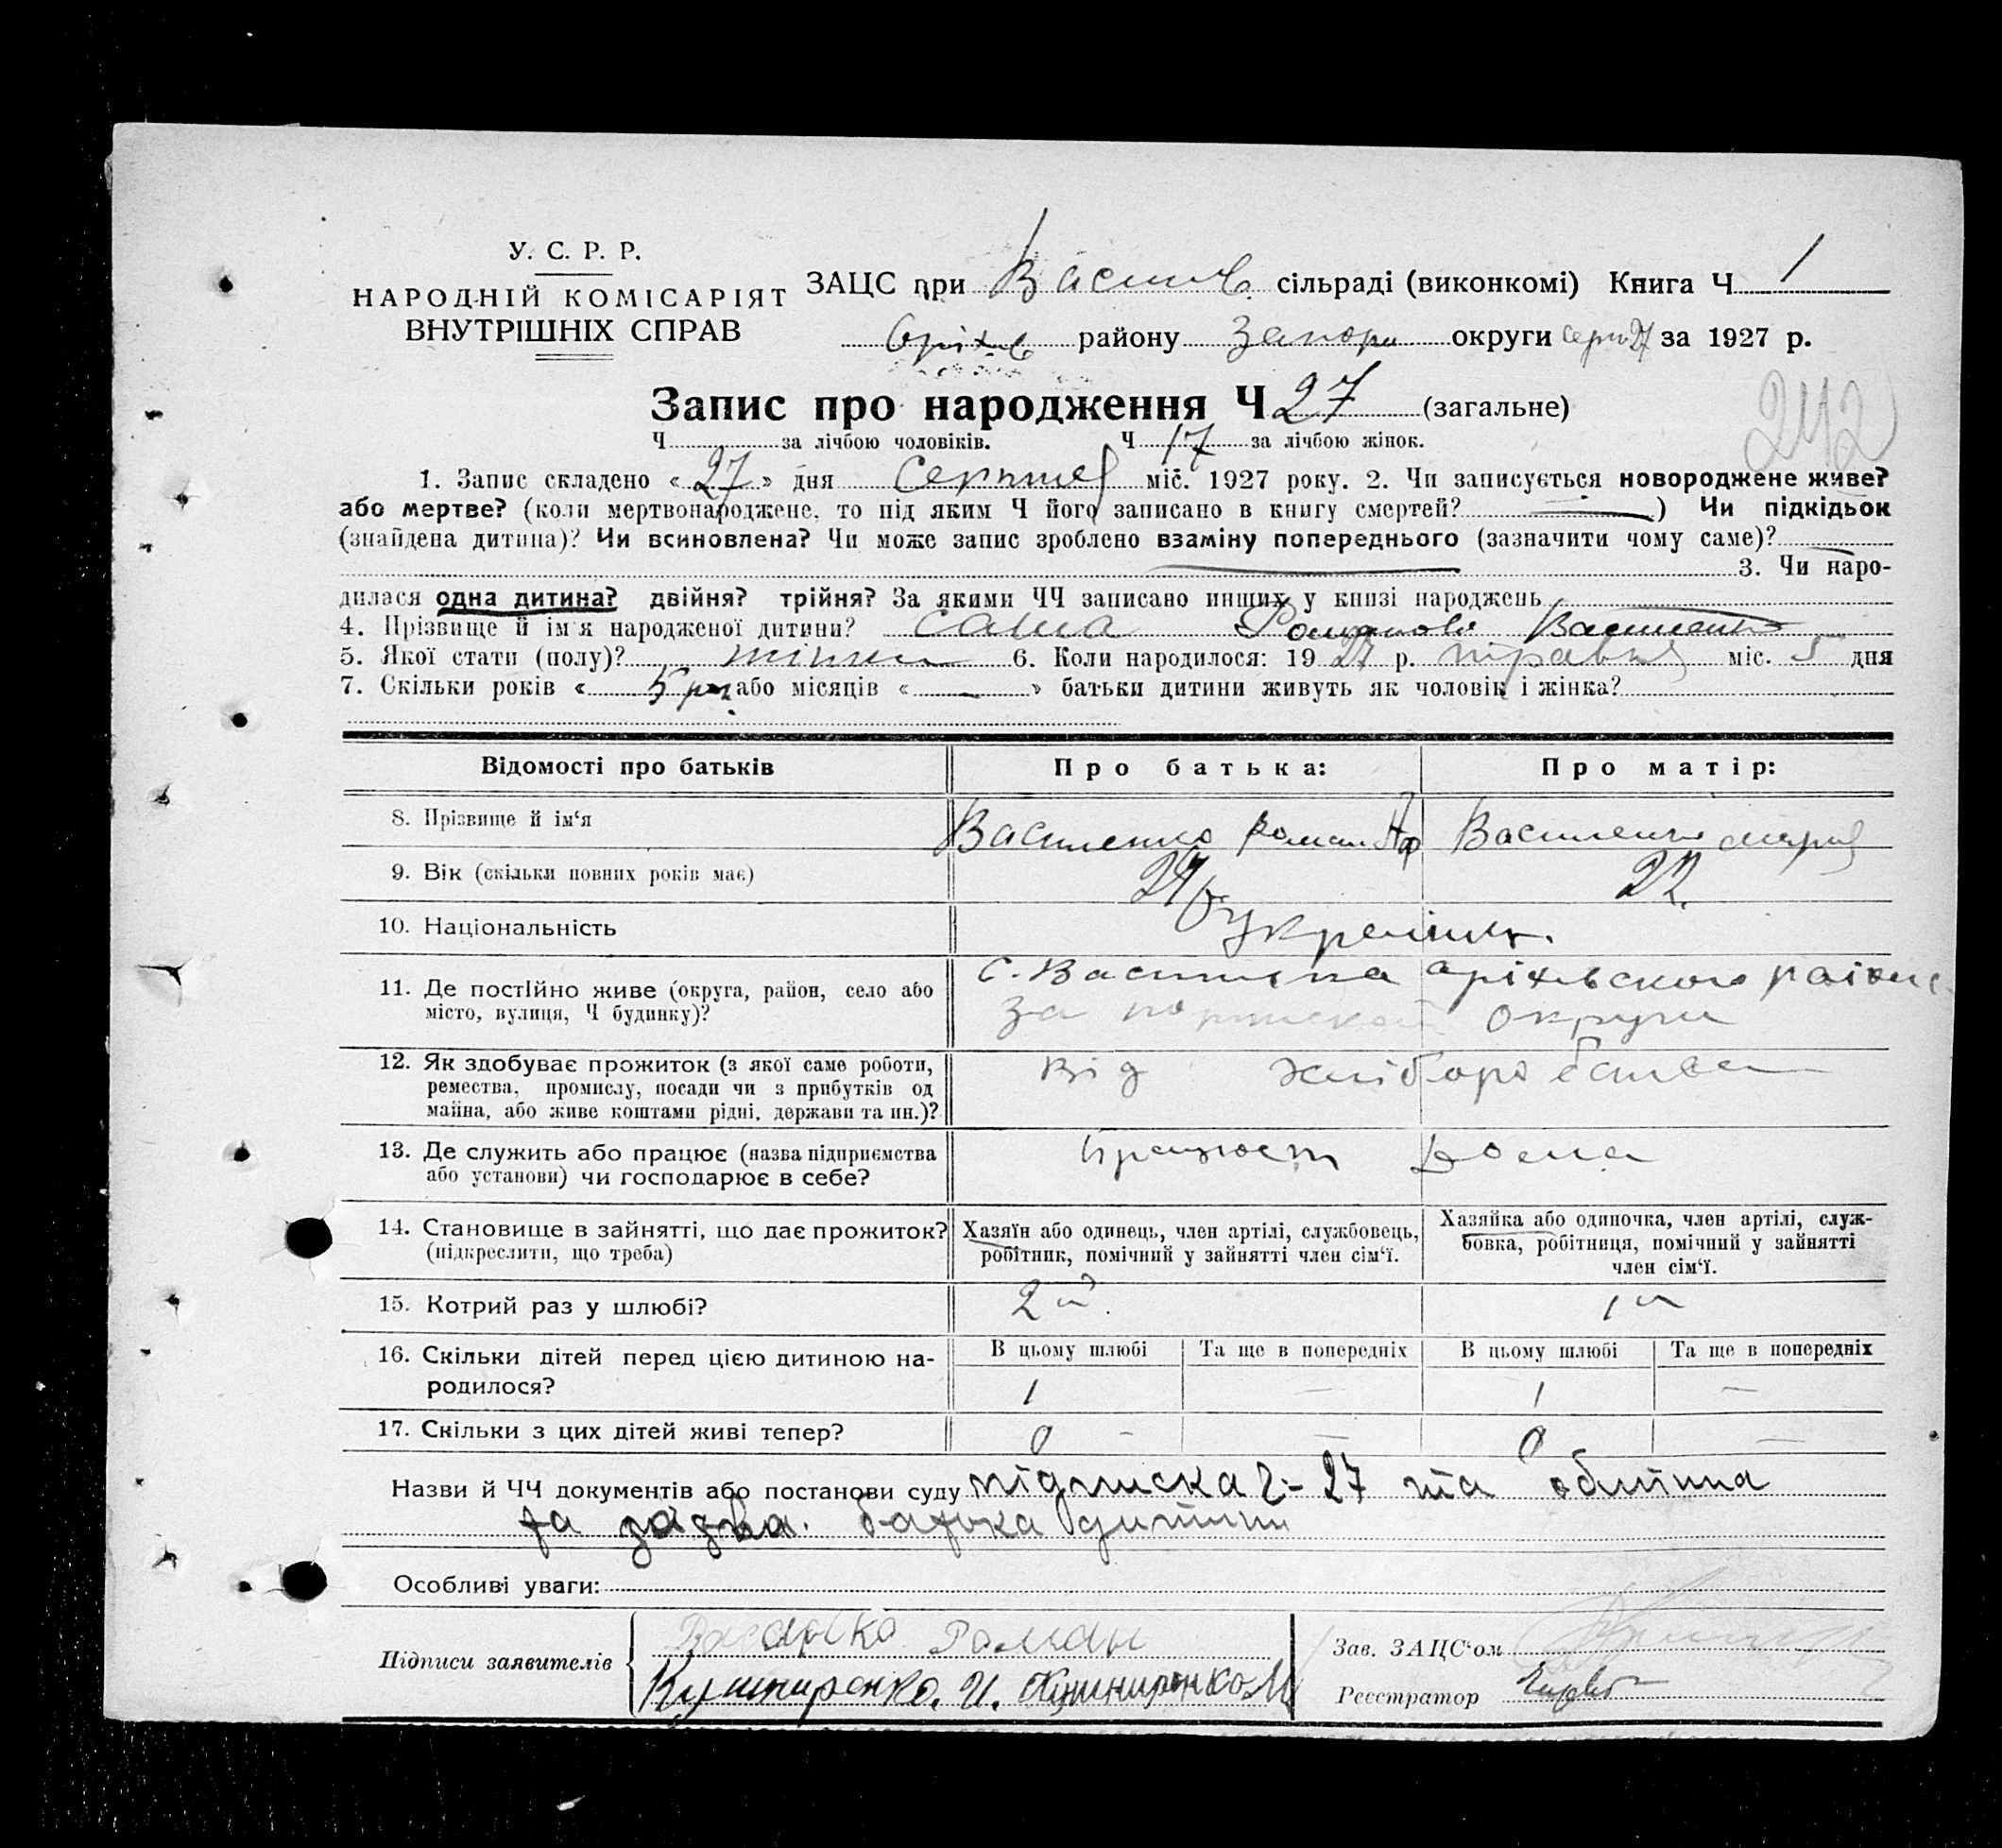 У. С. Р. Р.
НАРОДНІЙ КОМІСАРІЯТ
ВНУТРІШНІХ СПРАВ
ЗАЦС при Васил. сільраді (виконкомі) Книга Ч 1
Оріхів району Запори округи серп 27 за 1927 р.
Запис про народження Ч 27 (загальне)
242
Ч за лічбою чоловіків. Ч 17 за лічбою жінок.
1. Запис складено « 27 » дня Серпня міс. 1927 року. 2. Чи записується новороджене живе?
або мертве? (коли мертвонароджене, то під яким Ч його записано в книгу смертей? — ) Чи підкідьок
(знайдена дитина)? Чи всиновлена? Чи може запис зроблено взаміну попереднього (зазначити чому саме)?
3. Чи наро-
дилася одна дитина? двійня? трійня? За якими ЧЧ записано инших у книзі народжень
4. Прізвище й ім'я народженої дитини? Саша Романова Василенко
5. Якої стати (полу)? жіноч 6. Коли народилося: 19 27 р. травня міс. 5 дня
7. Скільки років « 5 рок або місяців « — » батьки дитини живуть як чоловік і жінка?
Відомості про батьків Про батька: Про матір:
8. Прізвище й ім‘я Василенко Роман Василенко Мария
9. Вік (скільки повних років має) 24 22.
10. Національність Украінці.
11. Де постійно живе (округа, район, село або С. Василівка Оріхівского раіону
місто, вулиця, Ч будинку)? Запорижскої Округи
12. Як здобуває прожиток (з якої саме роботи, Від хліборобства
ремества, промислу, посади чи з прибутків од
майна, або живе коштами рідні, держави та ин.)?
13. Де служить або працює (назва підприємства працюєт дома
або установи) чи господарює в себе?
14. Становище в зайнятті, що дає прожиток? Хазяїн або одинець, член артілі, службовець, Хазяйка або одиночка, член артілі, служ-
(підкреслити, що треба) робітник, помічний у зайнятті член сім‘ї. бовка, робітниця, помічний у зайнятті
член сім‘ї.
15. Котрий раз у шлюбі? 2й. 1й
16. Скільки дітей перед цією дитиною на- В цьому шлюбі Та ще в попередніх В цьому шлюбі Та ще в попередніх
родилося? 1 — 1 —
17. Скільки з цих дітей живі тепер? 0 — — 0 —
Назви й ЧЧ документів або постанови суду підписка Ч- 27 та
та заява. батька дитини
Особливі уваги:
Підписи заявителів Роман
Кушниренко. И. Кушниренко М
Зав. ЗАЦС‘ом
Реєстратор